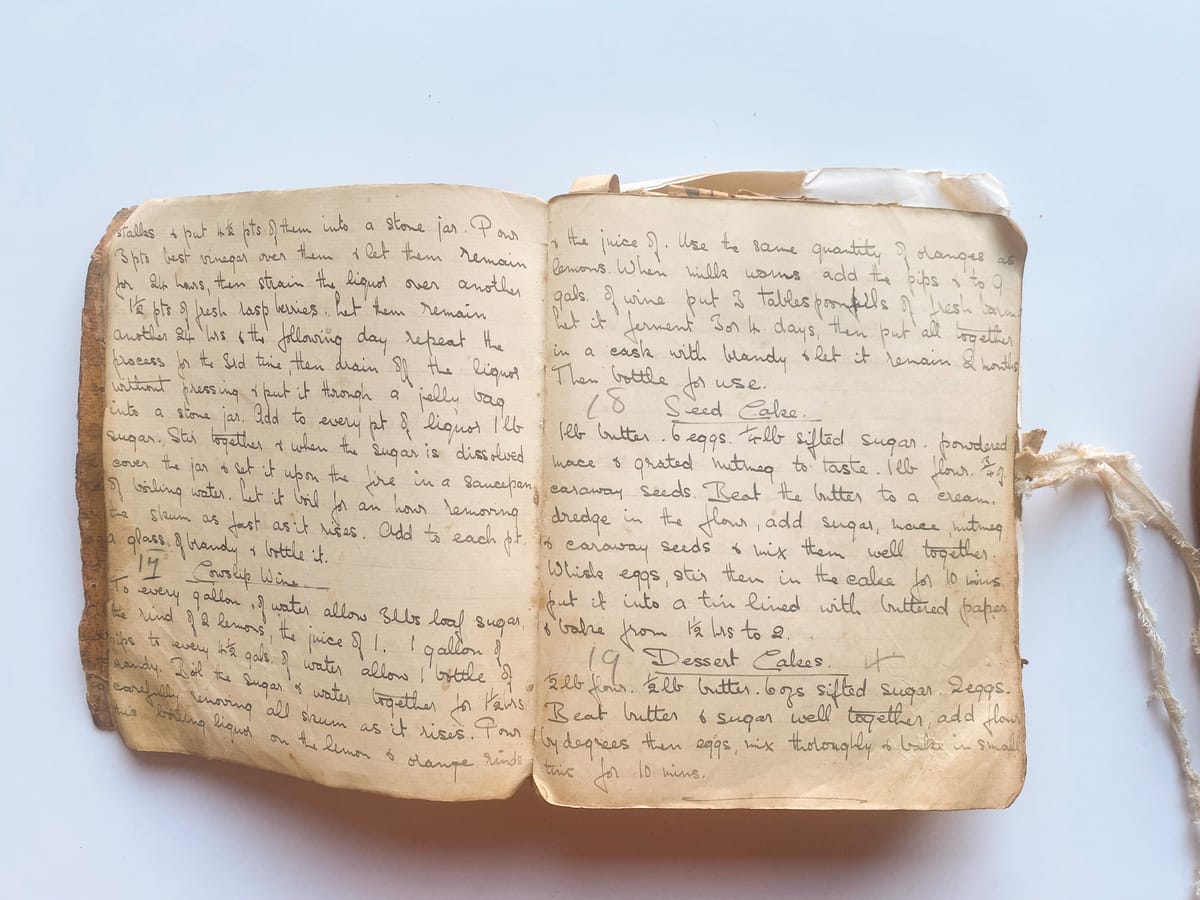 stalks & put 4½ pts of them into a stone jar. Pour
3 pts best vinegar over them & let them remain
for 24 hours, then strain the liquor over another
1½ pts of fresh raspberries. Let them remain
another 24 hrs & the following day repeat the
process for the 3rd time, then drain off the liquor
without pressing & put it through a jelly bag
into a stone jar. Add to every pt of liquor 1 lb
sugar. Stir together & when the sugar is dissolved
cover the jar & set it upon the fire in a saucepan
of boiling water. Let it boil for an hour removing
the skum as fast as it rises. Add to each pt.
a glass of brandy & bottle it.
17 Cowslip Wine.
To every gallon of water allow 3lbs loaf sugar,
the rind of 2 lemons, the juice of 1. 1 gallon of
pips to every 4½ gals. of water allow 1 bottle of
brandy. Boil the sugar & water together for 1½ hrs
carefully removing all skum as it rises. Pour
this boiling liquor on the lemon & orange rinds
& the juice of. Use the same quantity of oranges as
lemons. When milk warm add the pips & to 9
gals. of wine put 3 tablespoonfulls of fresh barm
Let it ferment 3 or 4 days, then put all together
in a cask with brandy & let it remain 2 months
Then bottle for use.
18 Seed Cake.
1lb butter. 6 eggs. ¾lb sifted sugar. powdered
mace & grated nutmeg to taste. 1lb flour. ¾ oz
caraway seeds. Beat the butter to a cream.
dredge in the flour, add sugar, mace, nutmeg
& caraway seeds & mix them well together.
Whisk eggs, stir then in the cake for 10 mins
put it into a tin lined with buttered paper
& bake from 1½ hrs to 2.
19 Dessert Cakes.
½lb flour. ½lb butter. 6 ozs sifted sugar. 2 eggs.
Beat butter & sugar well together, add flour
by degrees then eggs, mix thoroughly & bake in small
tins for 10 mins.